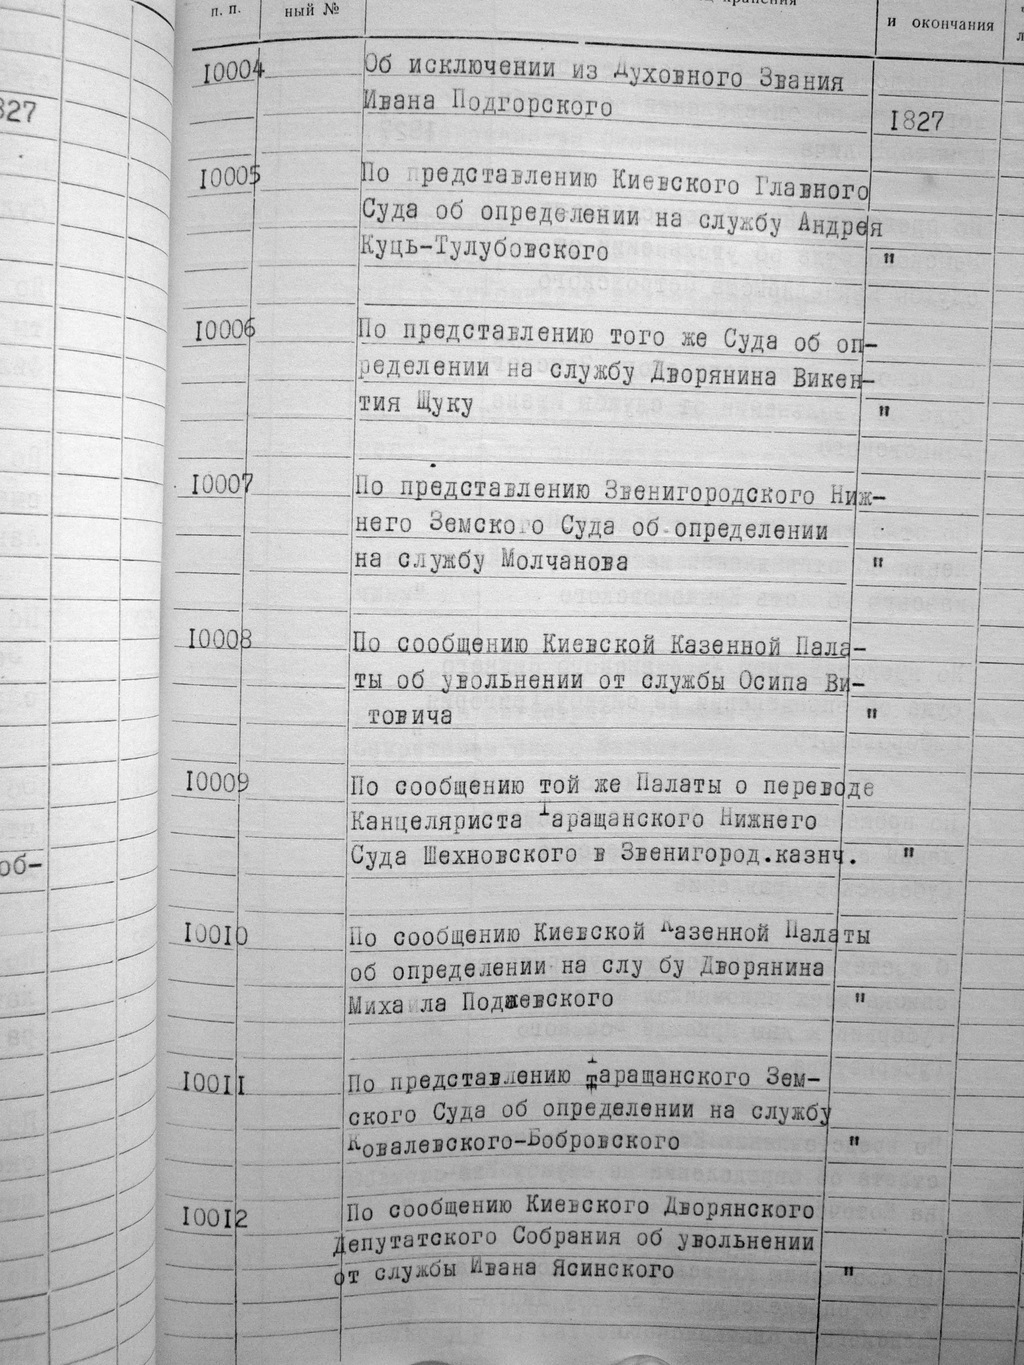 п. п.
ный №
хранения
и окончания
10004
Об исключении из Духовного Звания
Ивана Подгорского
1827
10005
По представлению Киевского Главного
Суда об определении на службу Андрея
Куць-Тулубовского "
10006
По представлению того же Суда об оп-
ределении на службу Дворянина Викен-
тия Щуку "
10007
По представлению Звенигородского Ниж-
него Земского Суда об определении
на службу Молчанова "
10008
По сообщению Киевской Казенной Пала-
ты об увольнении от службы Осипа Ви-
товича "
10009
По сообщению той же Палаты о переводе
Канцеляриста Таращанского Нижнего
Суда Шехновского в Звенигород.казнч. "
10010
По сообщению Киевской Казенной Палаты
об определении на слу бу Дворянина
Михаила Поджевского "
10011
По представлению Таращанского Зем-
ского Суда об определении на службу
Ковалевского-Бобровского "
10012
По сообщению Киевского Дворянского
Депутатского Собрания об увольнении
от службы Ивана Ясинского "
827
об-